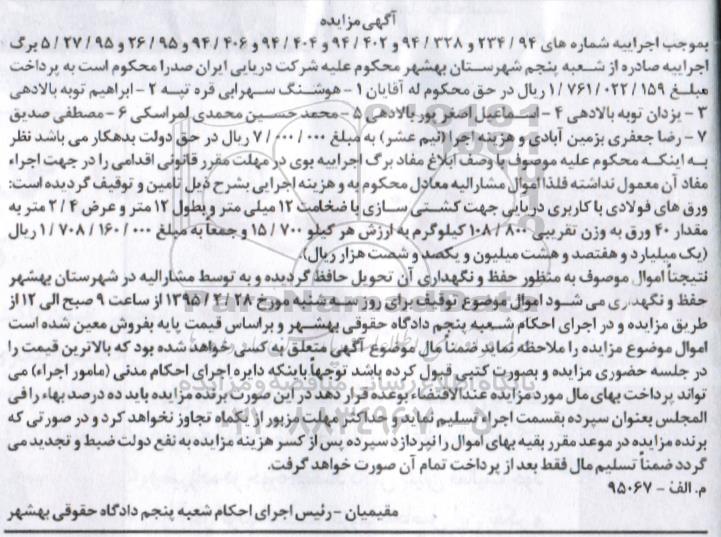 آگهی مزایده
بموجب اجراییه شماره های ۹۴ / ۲۳۴ و ۳۲۸ / ۹۴ و ۴۰۲ / ۹۴ و ۴۰۴ / ۹۴ و ۴۰۶ / ۹۴ و ۹۵ / ۲۶ و ۹۵ / ۲۷ / ۵ برگ
اجراییه صادره از شعبه پنجم شهرستان بهشهر محکوم علیه شرکت دریایی ایران صدرا محکوم است به پرداخت
مبلغ ۱۵۹ / ۰۲۲ / ۷۶۱ / ۱ ریال در حق محکوم له آقایان ۱ - هوشنگ سهرابی قره تپه ۲ - ابراهیم توبه یالادهی
۳ - یزدان توبه یالادهی ۴ - اسماعیل اصغر پور یالادهی ۵ - محمد حسین محمدی لمراسکی ۶ - مصطفی صدیق
۷ - رضا جعفری بزمین آبادی و هزینه اجرا (نیم عشر) به مبلغ ۰۰۰ / ۰۰۰ / ۷ ریال در حق دولت بدهکار می باشد نظر
به اینکه محکوم علیه موصوف با وصف ابلاغ مفاد برگ اجراییه بوی در مهلت مقرر قانونی اقدامی را در جهت اجراء
مفاد آن معمول نداشته فلذا اموال مشارالیه معادل محکوم به و هزینه اجرایی بشرح ذیل تامین و توقیف گردیده است:
ورق های فولادی با کاربری دریایی جهت کشتی سازی با ضخامت ۱۲ میلی متر و بطول ۱۲ متر و عرض ۴ / ۲ متر به
مقدار ۴۰ ورق به وزن تقریبی ۸۰۰ / ۱۰۸ کیلوگرم به ارزش هر کیلو ۷۰۰ / ۱۵ و جمعاً به مبلغ ۰۰۰ / ۱۶۰ / ۷۰۸ / ۱ ریال
(یک میلیارد و هفتصد و هشت میلیون و یکصد و شصت هزار ریال).
نتیجتاً اموال موصوف به منظور حفظ و نگهداری آن تحویل حافظ گردیده و به توسط مشارالیه در شهرستان بهشهر
حفظ و نگهداری می شود اموال موضوع توقیف برای روز سه شنبه مورخ ۲۸ / ۲ / ۱۳۹۵ از ساعت ۹ صبح الی ۱۲ از
طریق مزایده و در اجرای احکام شعبه پنجم دادگاه حقوقی بهشهر و براساس قیمت پایه بفروش معین شده است
اموال موضوع مزایده را ملاحظه نماید ضمناً مال موضوع آگهی متعلق به کسی خواهد شده بود که بالاترین قیمت را
در جلسه حضوری مزایده و بصورت کتبی قبول کرده باشد توجهاً باینکه دایره اجرای احکام مدنی (مامور اجراء) می
تواند پرداخت بهای مال مورد مزایده عندالاقتضاء بوعده قرار دهد در این صورت برنده مزایده باید ده درصد بهاء را فی
المجلس بعنوان سپرده بقسمت اجراء تسلیم نماید و حداکثر مهلت مزبور از یکماه تجاوز نخواهد کرد و در صورتی که
برنده مزایده در موعد مقرر بقیه بهای اموال را نپردازد سپرده پس از کسر هزینه مزایده به نفع دولت ضبط و تجدید می
گردد ضمناً تسلیم مال فقط بعد از پرداخت تمام آن صورت خواهد گرفت.
م. الف - ۹۵۰۶۷
مقیمیان - رئیس اجرای احکام شعبه پنجم دادگاه حقوقی بهشهر